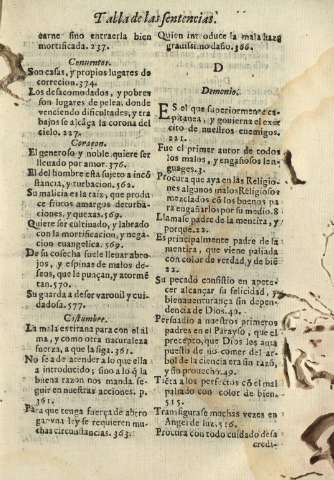 Tabla de las sentencias.
carne sino entraerla bien
mortificada. 237.
Conuentos.
Son casas, y propios lugares de
correcion. 374.
Los desacomodados, y pobres
son lugares de pelea, donde
venciendo dificultades, y tra
bajos se alcāça la corona del
cielo. 227.
Coraçon.
El generoso y noble quiere ser
lleuado por amor. 376.
El del hombre esta sujeto a incō
stancia, y turbacion. 562.
Su malicia es la raiz, que produ
ce frutos amargos de turba-
ciones, y quexas. 569.
Quiere ser cultiuado, y labrado
con la mortificacion, y nega-
cion euangelica. 569.
De su cosecha suele lleuar abro-
jos, y espinas de malos de-
seos, que le punçan, y atormē
tan. 570.
Su guarda a de ser varonil y cui-
dadosa. 577.
Costumbre.
La mala es tirana para con el al
ma, y como otra naturaleza
fuerza, a que la siga. 361.
No se a de atender a lo que ella
a introducido; sino a lo q̄ la
buena razon nos manda se-
guir en nuestras acciones. p.
361.
Para que tenga fuerça de abro
gar vna ley se requieren mu-
chas circunstancias. 363.
Quien introduce la mala haze
grauissimo daño. 366.
D
Demonio.
Es el que superiormente ca-
pitanea, y gouierna el exer
cito de nuestros enemigos.
221.
Fue el primer autor de todos
los malos, y engañosos len-
guages. 3.
Procura que aya en las Religio-
nes algunos malos Religiosos
mezclados cō los buenos pa
ra engañarlos por su medio. 8
Llamase padre de la mentira, y
porque. 22.
Es principalmente padre de la
mentira, que viene paliada
con color de verdad, y de biē
22.
Su pecado consistio en apete-
cer alcançar su felicidad, y
bienauenturança sin depen-
dencia de Dios. 40.
Persuadio a nuestros primeros
padres en el Parayso, que el
precepto, que Dios les auia
puesto de no comer del ar-
bol de la ciencia era sin razō,
y sin prouecho. 49.
Tiēta a los perfectos cō el mal
paliado con color de bien.
515.
Transfigurase muchas vezes en
Angel de luz. 516.
Procura con todo cuidado desa
credi-